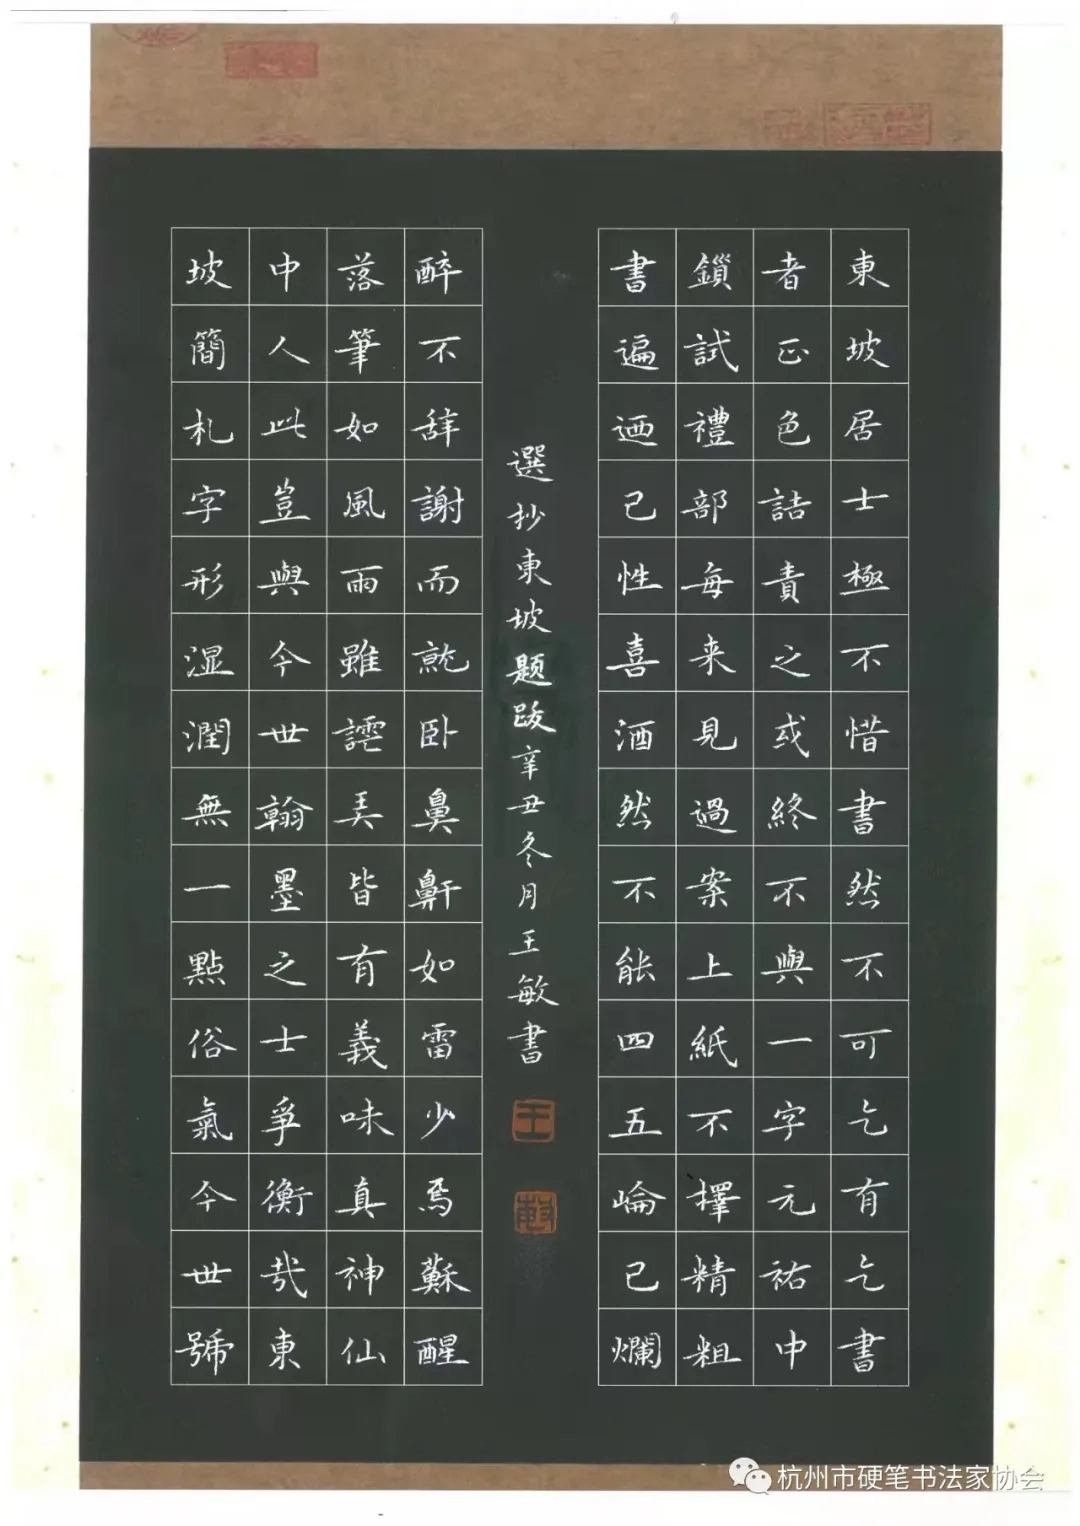 東坡居士極不惜書然不可乞有乞書
者正色詰責之或終不與一字元祐中
鎖試禮部每来見過案上紙不擇精粗
書遍迺已性喜酒然不能四五崘已爛
選抄東坡題跋辛丑冬月王敏書
醉不辞謝而就卧鼻鼾如雷少焉蘇醒
落筆如風雨雖謔弄皆有義味真神仙
中人此豈與今世翰墨之士爭衡哉東
坡簡札字形湿潤無一點俗氣今世號
杭州市硬笔书法家协会